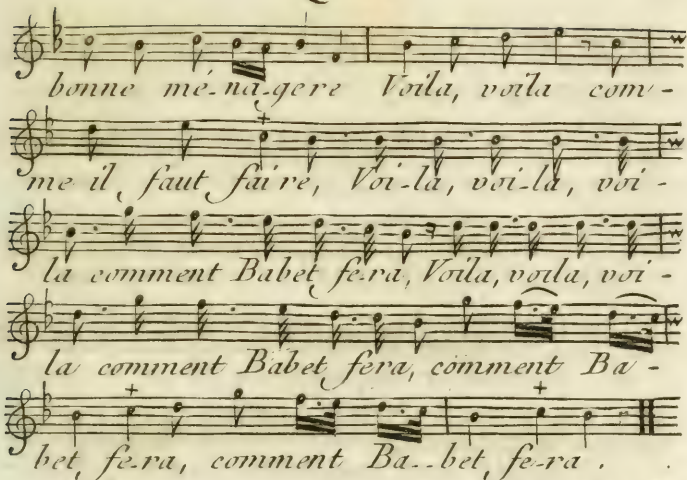 bonne mé-na-gere Voila, voila com-
me il faut faire, Voi-la, voi-la, voi-
la comment Babet fe-ra, Voila, voila, voi-
la comment Babet fera, comment Ba-
bet, fe-ra, comment Ba--bet, fe-ra.